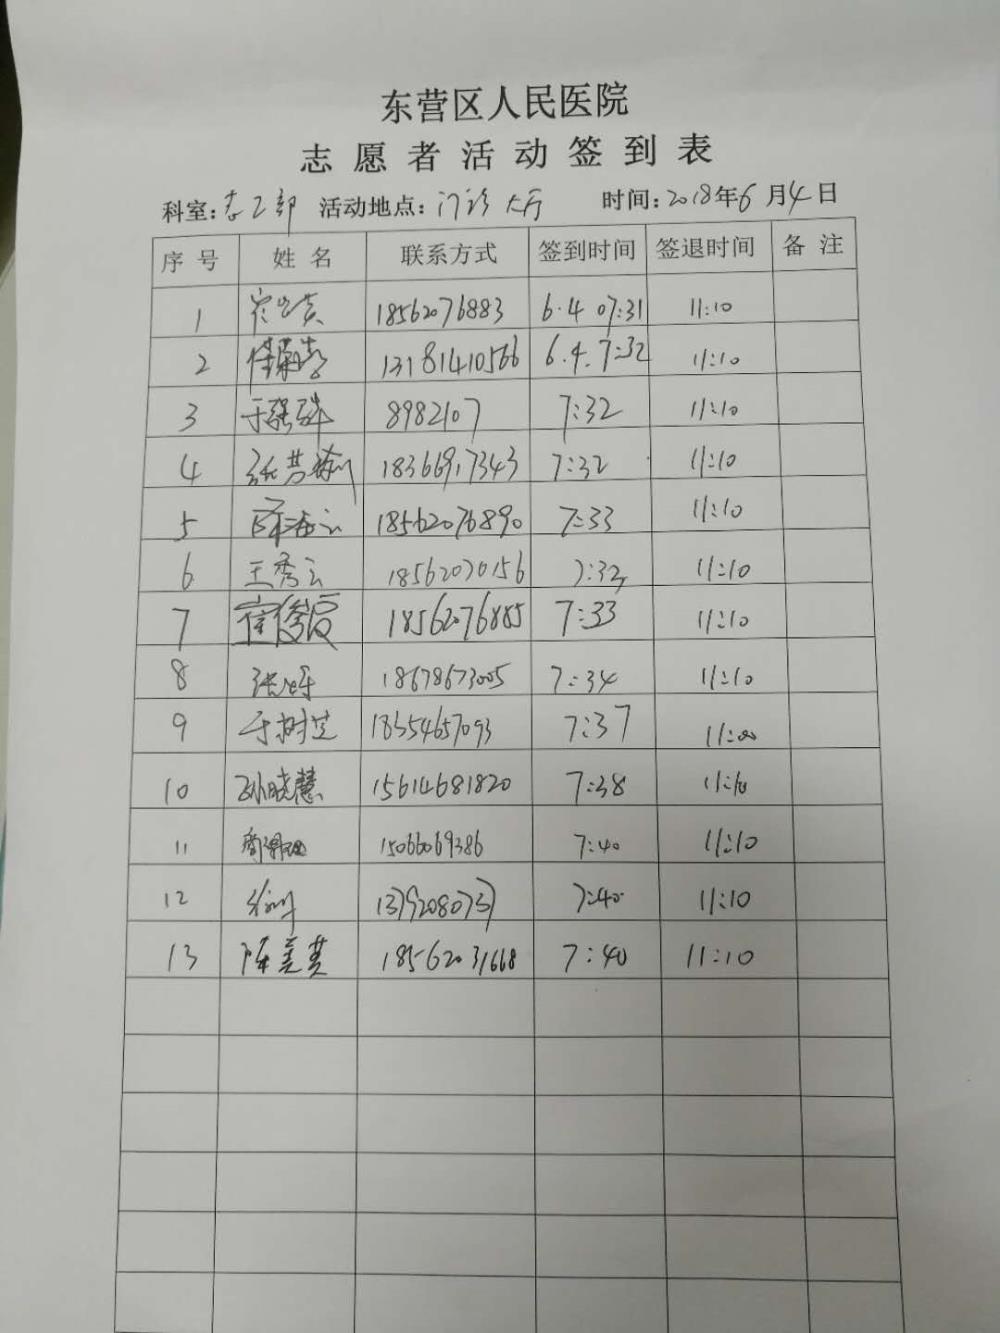 东营区人民医院
志愿者活动签到表
科室:志工部 活动地点:门诊大厅 时间:2018年6月4日
序号 姓名 联系方式 签到时间 签退时间 备注
1 18562076883 6.4 07:31 11:10
2 13181410566 6.4. 7:32 11:10
3 于强珠 8982107 7:32 11:10
4 18366917343 7:32 11:10
5 薛海云 18562076890 7:33 11:10
6 王秀云 18562070156 7:32 11:10
7 崔俊霞 18562076885 7:33 11:10
8 18678673005 7:34 11:10
9 于树芝 18354657093 7:37 11:00
10 孙晓慧 15614681820 7:38 11:10
11 15066069386 7:40 11:10
12 7:40 11:10
13 陈美英 18562031668 7:40 11:10